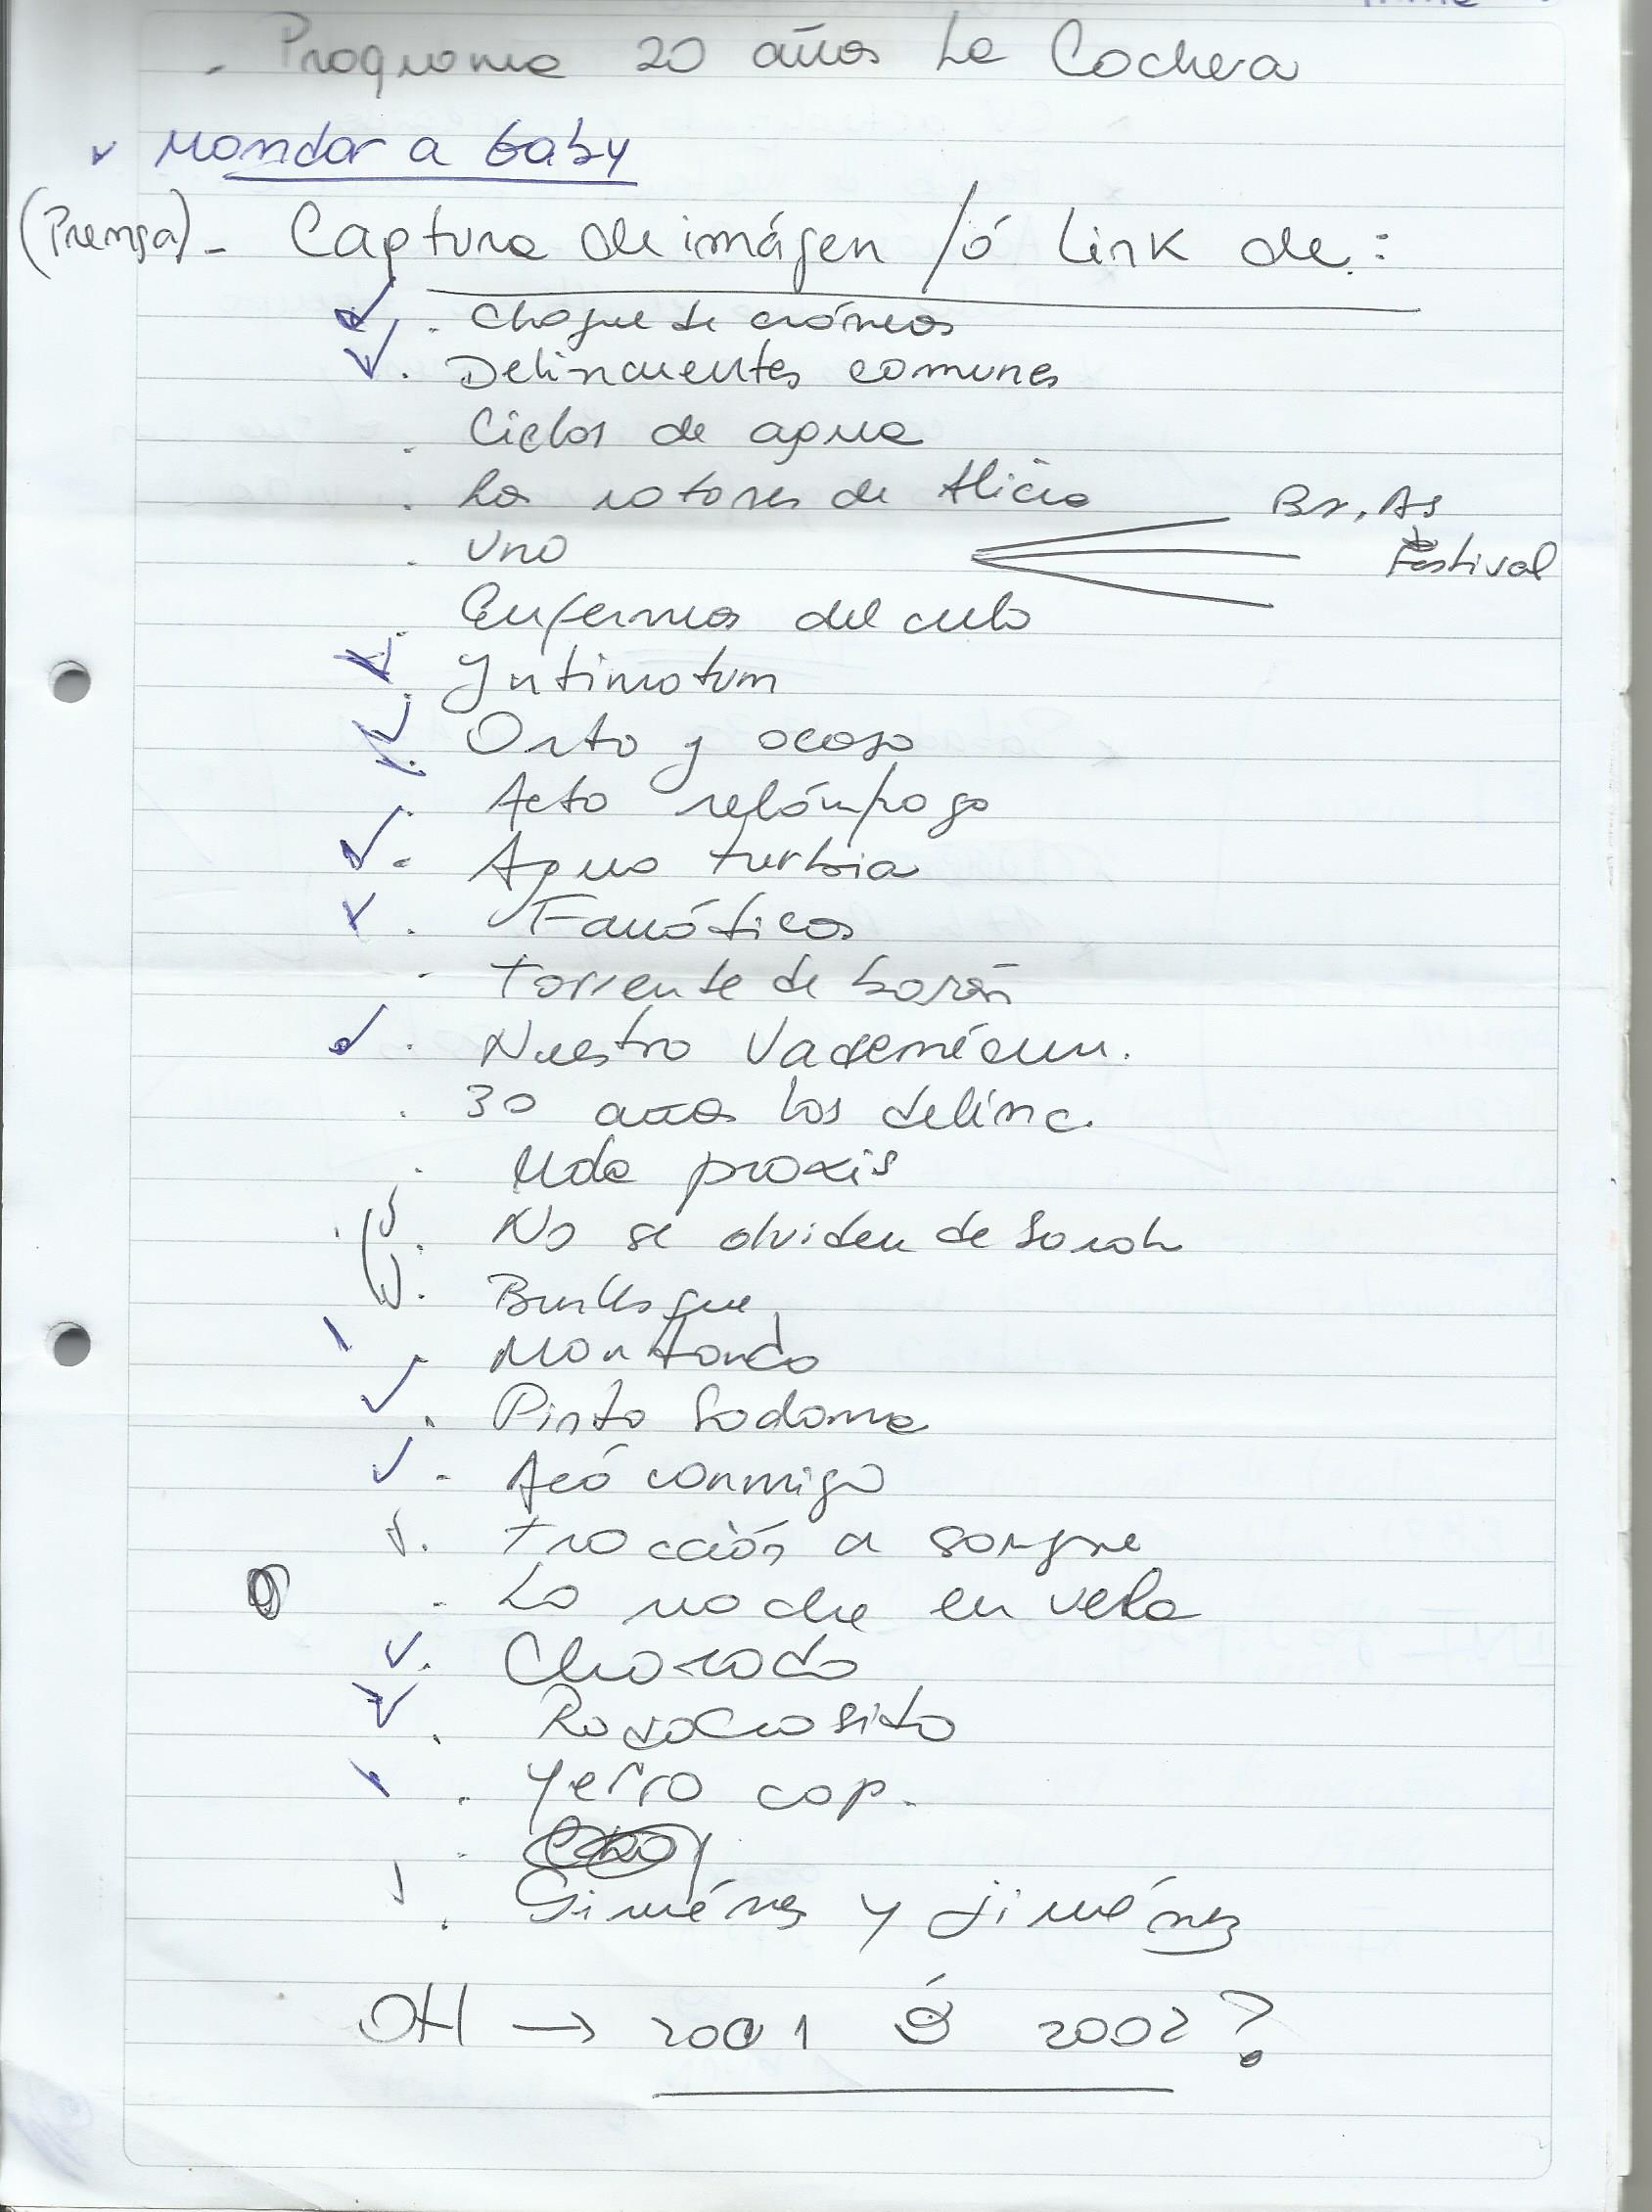 - Programa 20 años La Cochera
Mandar a Gaby
(Prensa) - Captura de imágen /ó Link de:
. Choque de cráneos
. Delincuentes comunes
. Ciclos de agua
. Los ratones de Alicia
Bs. As
. Uno
Festival
. Enfermos del culo
. Intimatum
. Orto y ocaso
. Acto relámpago
. Agua turbia
. Fanáticos
. Torrente de barón
. Nuestro Vademécum.
. 30 años los delinc.
. praxis
. No se olviden de Sarah
. Burlesque
. Montando
. Pinto Sodoma
. Acá conmigo
. Tracción a sangre
. La noche en vela
. Charada
.
. Yerro cap.
. Giménez y Jiménez
OH → 2001 ó 2002?